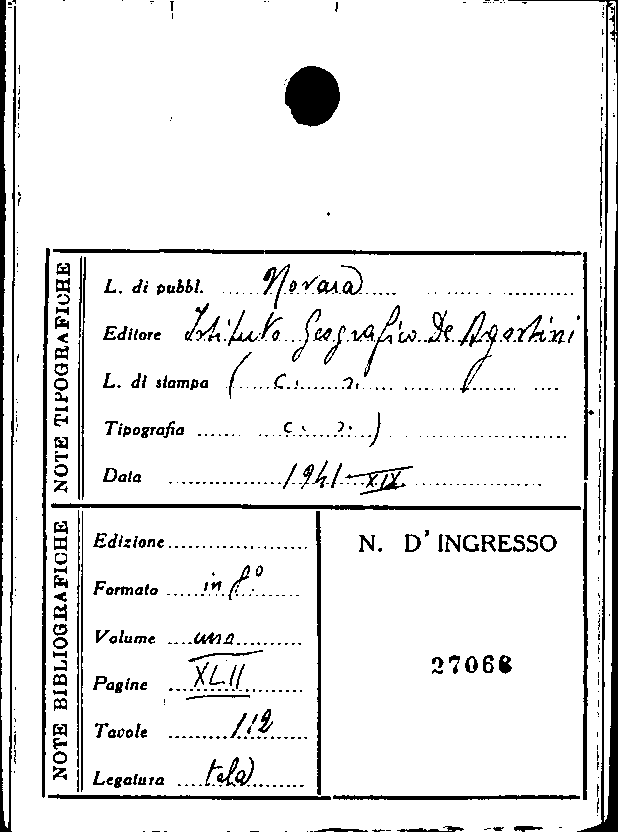 NOTE TIPOGRAFICHE
L. di pubbl. Novara
Editore Istituto Geografico De Agostini
L. di stampa ( c. s.
Tipografia c. s. )
Data 1941-XIX
NOTE BIBLIOGRAFICHE
Edizione
Formato in 8.º
Volume uno
Pagine XLII
Tavole 112
Legatura tela
N. D'INGRESSO
27068